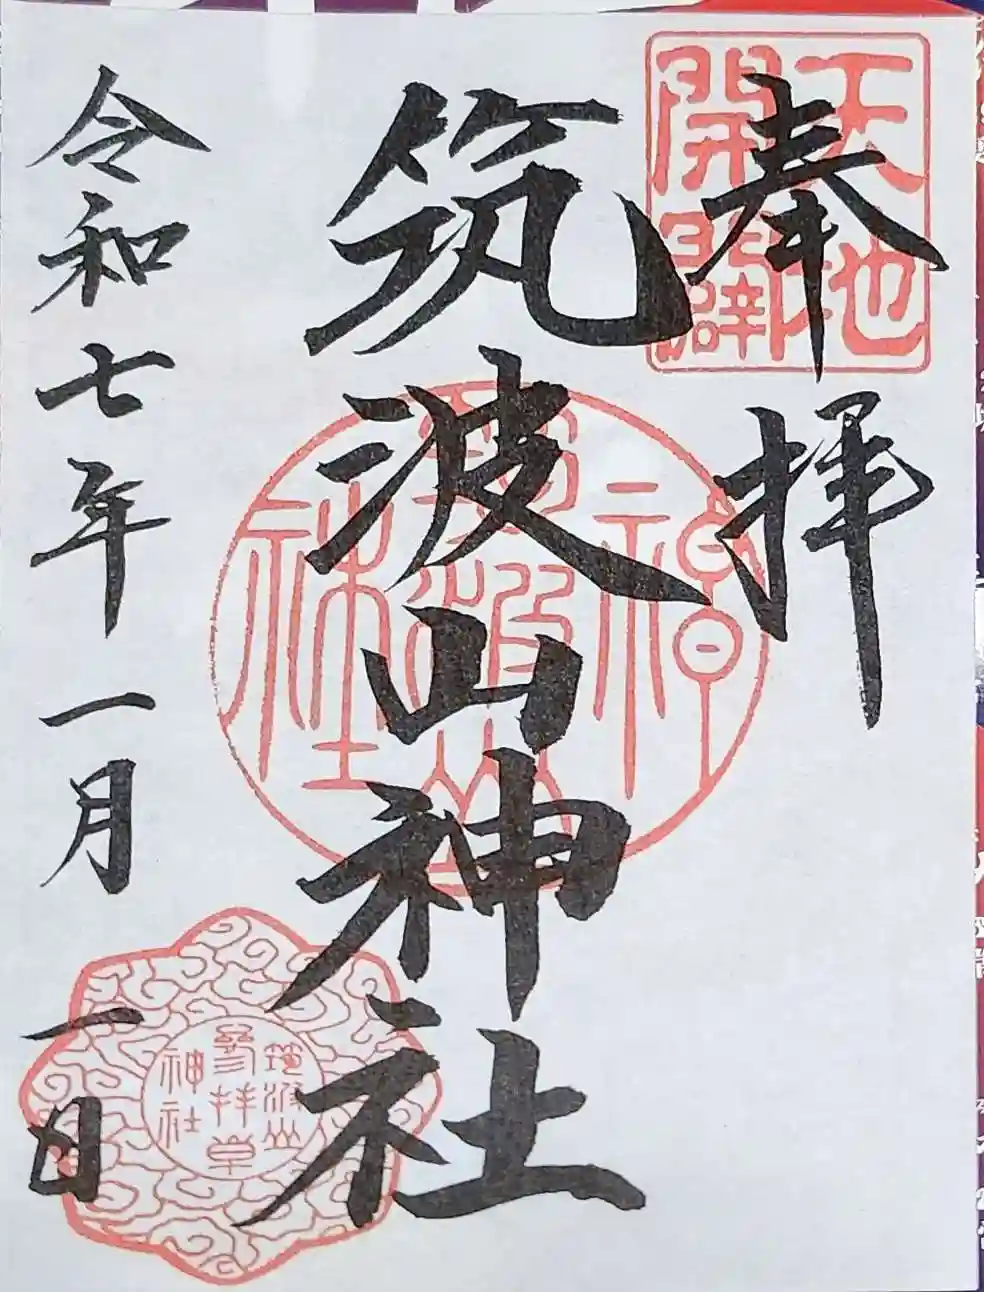 奉拝
天地
開闢
筑波山神社
筑波山
神社
令和七年一月一日
筑波山
参拝章
神社